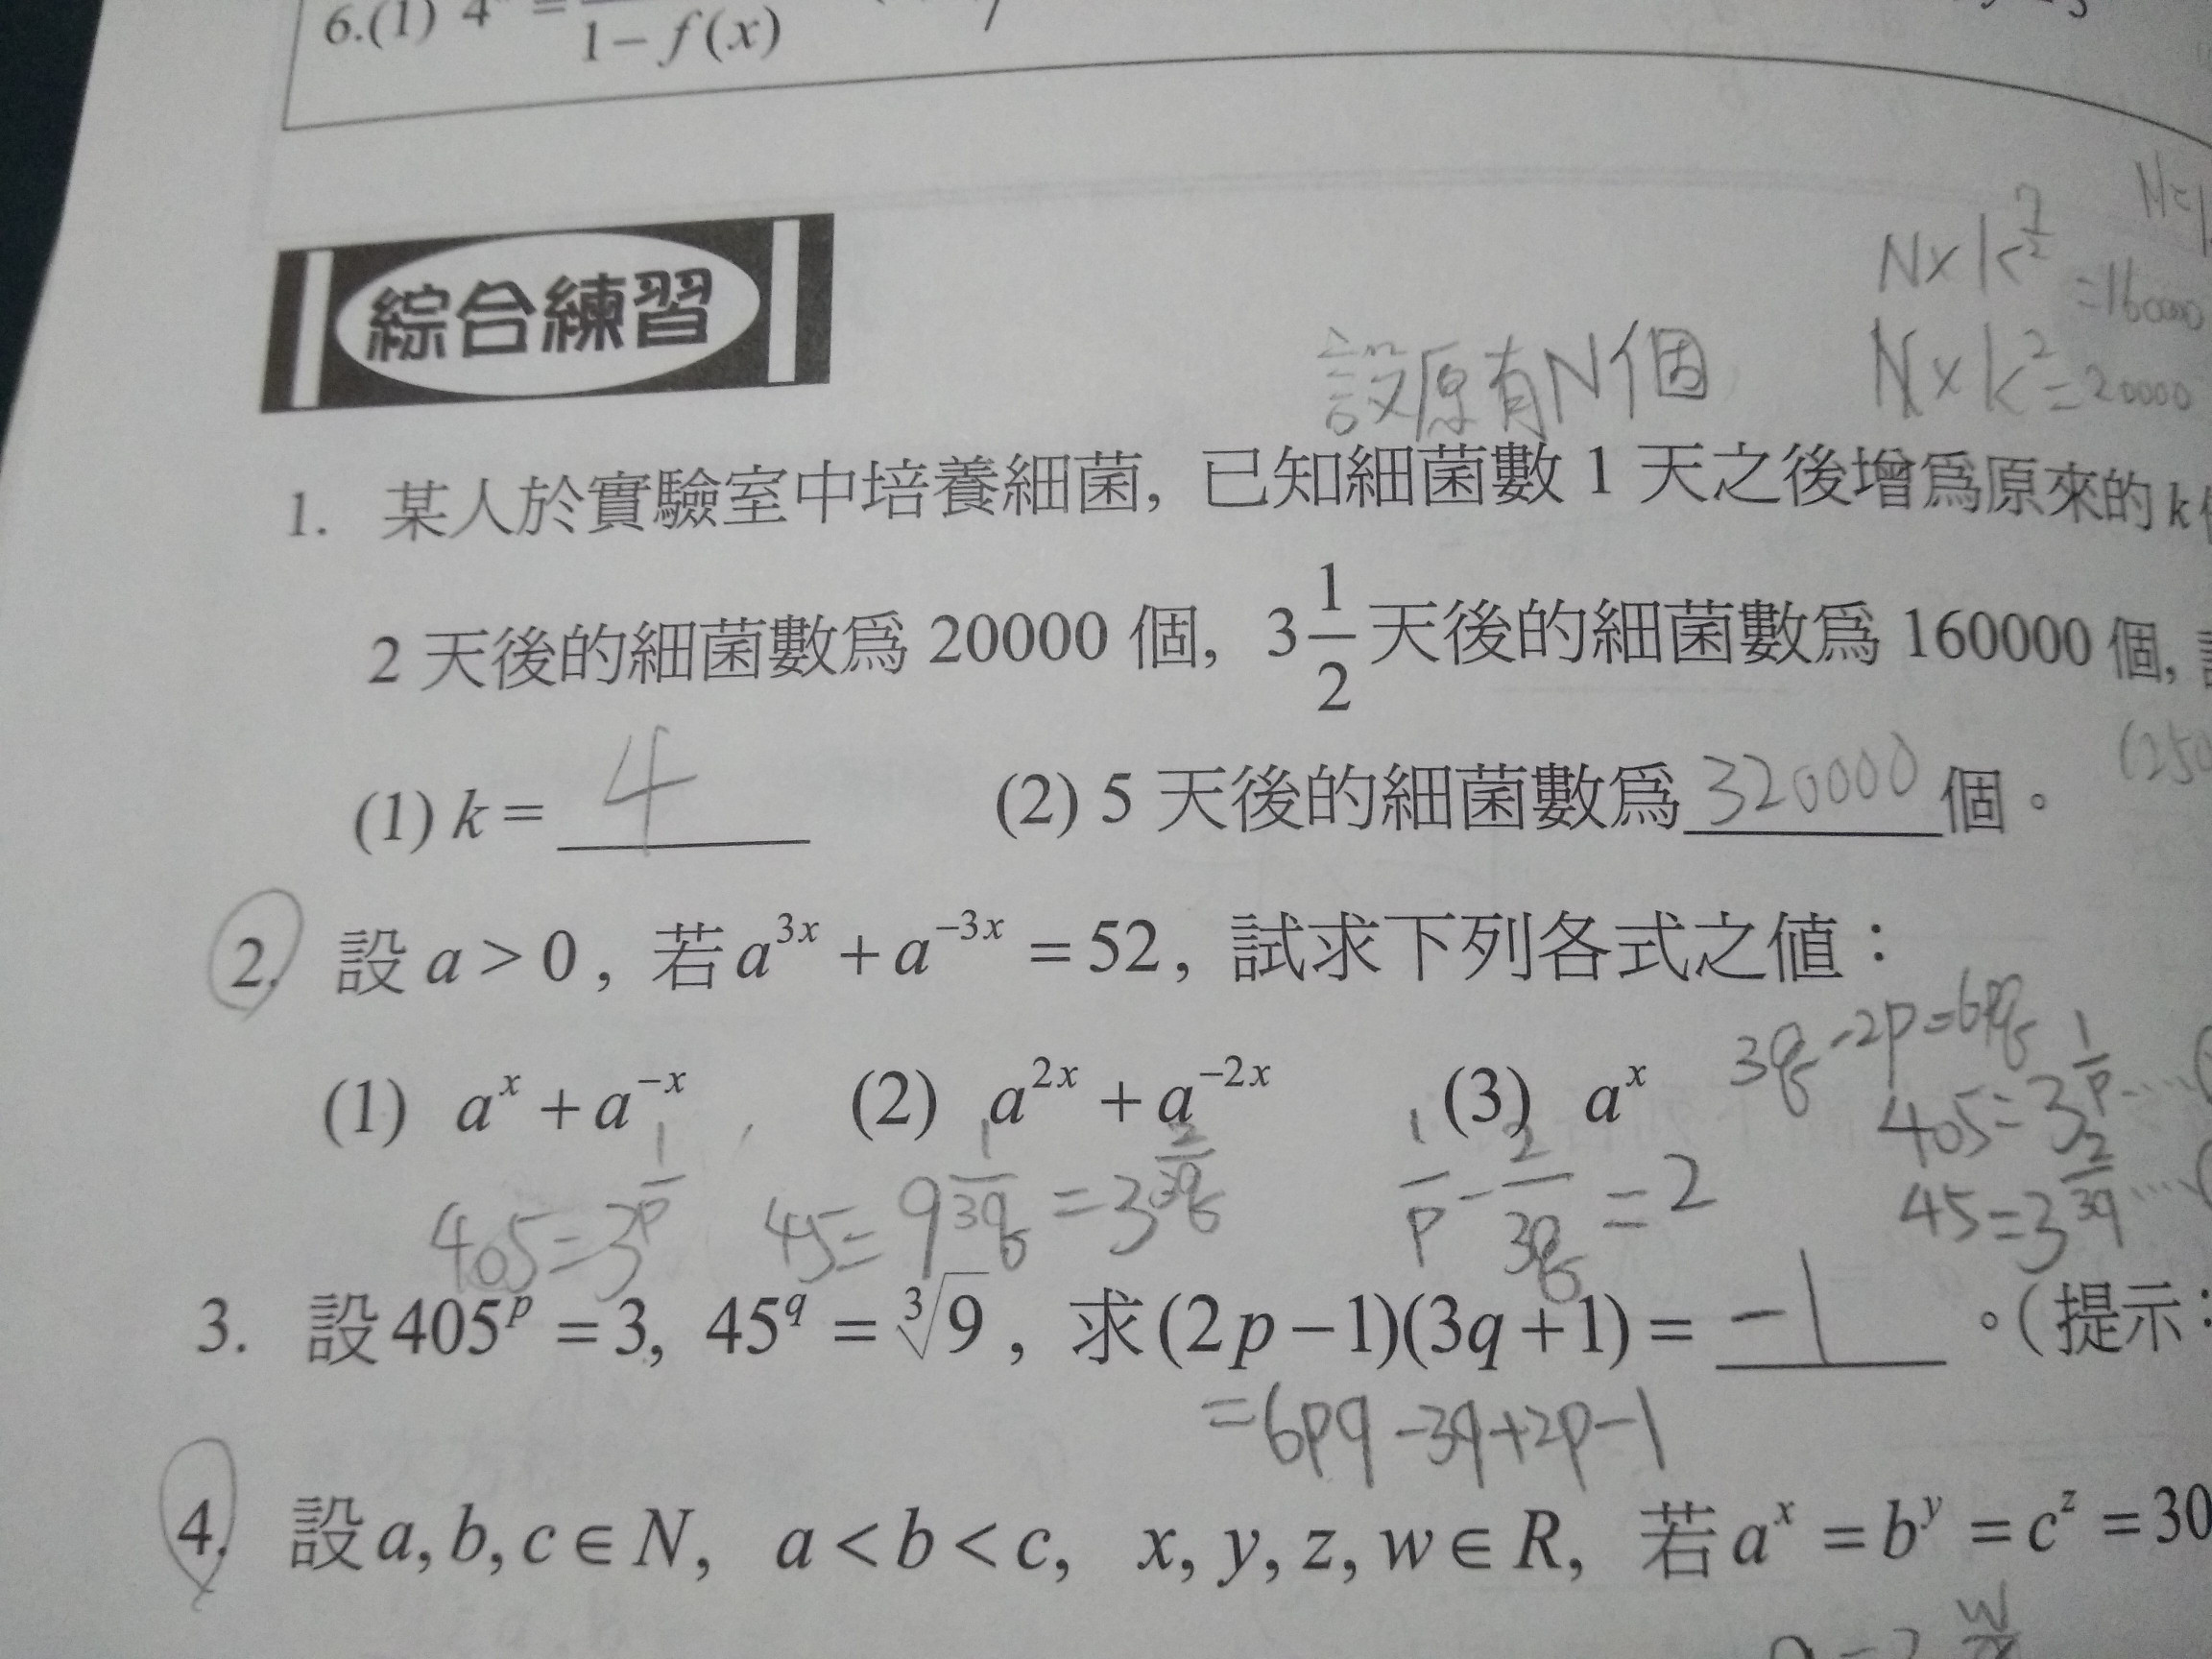 6.(1) 4
1−f(x)
綜合練習
N×k^{7/2} =160000
設原有N個 N×k²=20000
1. 某人於實驗室中培養細菌, 已知細菌數 1 天之後增爲原來的 k
2 天後的細菌數爲 20000 個, 3\frac{1}{2} 天後的細菌數爲 160000 個,
(1) k = 4 (2) 5 天後的細菌數爲 320000 個。
2. 設 a > 0 , 若 a^{3x} + a^{-3x} = 52, 試求下列各式之值：
(1) a^x + a^{-x} (2) a^{2x} + a^{-2x} (3) a^x
3q-2p=6pq
405=3^{1/p}
45=3^{2/3q}
405=3^{1/p} 45=9^{1/3q}=3^{2/3q} 1/p - 2/3q = 2
3. 設 405^p = 3, 45^q = ∛9 , 求 (2p−1)(3q+1) = -1 。(提示：
=6pq-3q+2p-1
4. 設 a, b, c ∈ N, a < b < c, x, y, z, w ∈ R, 若 a^x = b^y = c^z = 30